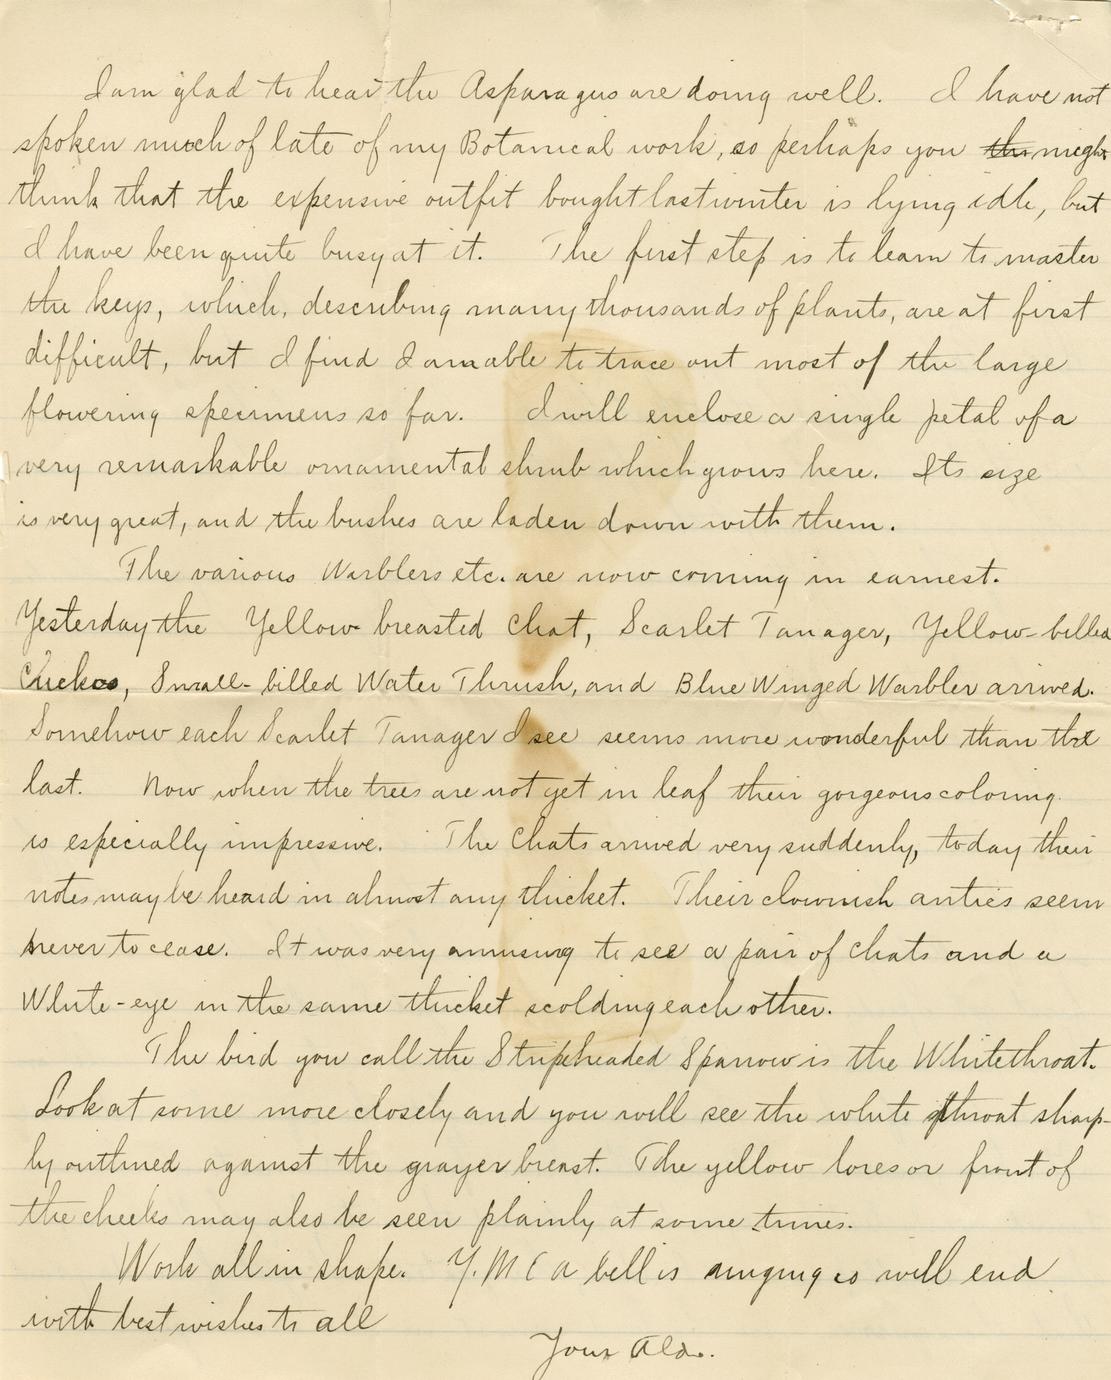 I am glad to hear the Asparagus are doing well. I have not
spoken much of late of my Botanical work, so perhaps you the might
think that the expensive outfit bought last winter is lying idle, but
I have been quite busy at it. The first step is to learn to master
the keys, which, describing many thousands of plants, are at first
difficult, but I find I am able to trace out most of the large
flowering specimens so far. I will enclose a single petal of a
very remarkable ornamental shrub which grows here. Its size
is very great, and the bushes are laden down with them.
The various Warblers etc. are now coming in earnest.
Yesterday the Yellow-breasted Chat, Scarlet Tanager, Yellow-billed
Cuckoo, Small-billed Water Thrush, and Blue Winged Warbler arrived.
Somehow each Scarlet Tanager I see seems more wonderful than the
last. Now when the trees are not yet in leaf their gorgeous coloring
is especially impressive. The Chats arrived very suddenly, today their
notes may be heard in almost any thicket. Their clownish antics seem
never to cease. It was very amusing to see a pair of Chats and a
White-eye in the same thicket scolding each other.
The bird you call the Stripeheaded Sparrow is the Whitethroat.
Look at some more closely and you will see the white throat sharp-
ly outlined against the grayer breast. The yellow lores or front of
the cheeks may also be seen plainly at some times.
Work all in shape. Y.M.C.A bell is ringing so will end
with best wishes to all
Your Aldo.